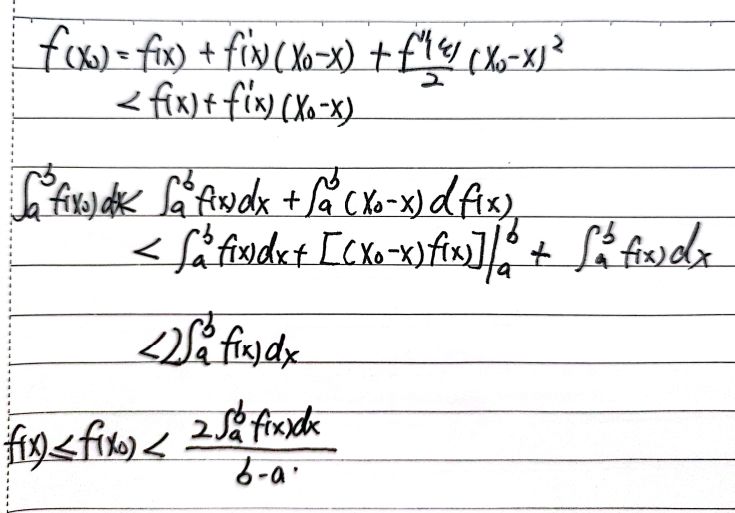 f(x₀) = f(x) + f'(x)(x₀-x) + f''(ξ)/2 (x₀-x)²
< f(x) + f'(x)(x₀-x)
∫ₐᵇ f(x₀)dx < ∫ₐᵇ f(x)dx + ∫ₐᵇ (x₀-x) d f(x)
< ∫ₐᵇ f(x)dx + [(x₀-x)f(x)]|ₐᵇ + ∫ₐᵇ f(x)dx
< 2∫ₐᵇ f(x)dx
f(x) ≤ f(x₀) < 2∫ₐᵇ f(x)dx / b-a.